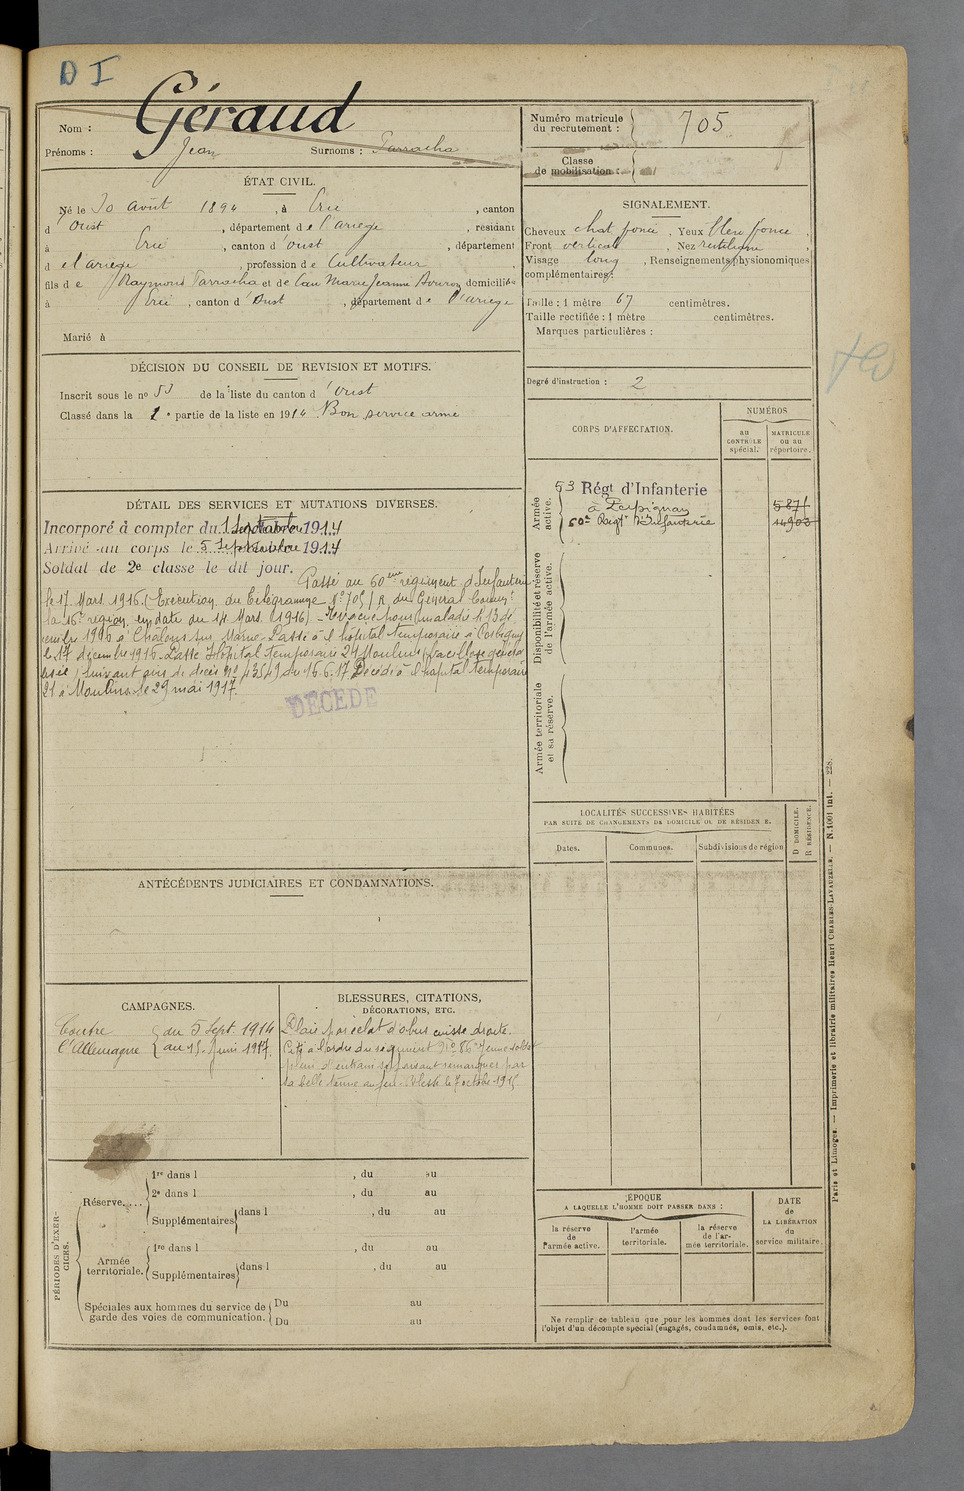 D I
Nom : Géraud
Prénoms : Jean Surnoms : Parracha
Numéro matricule
du recrutement : 705
Classe
de mobilisation :
ÉTAT CIVIL.
Né le 30 Août 1894, à Ercé, canton
d'Oust, département de l'Ariège, résidant
à Ercé, canton d'Oust, département
de l'Ariège, profession de Cultivateur
fils de Raymond Parracha et de Marie Jeanne domiciliés
à Ercé, canton d'Oust, département de l'Ariège
Marié à
SIGNALEMENT.
Cheveux chat. foncé, Yeux bleu foncé,
Front vertical, Nez rectiligne,
Visage long, Renseignements physionomiques
complémentaires :
Taille : 1 mètre 67 centimètres.
Taille rectifiée : 1 mètre centimètres.
Marques particulières :
Degré d'instruction : 2
DÉCISION DU CONSEIL DE REVISION ET MOTIFS.
Inscrit sous le n° 53 de la liste du canton d'Oust
Classé dans la 1e partie de la liste en 1914 Bon service armé
CORPS D'AFFECTATION.
NUMÉROS
au
CONTRÔLE
spécial.
MATRICULE
ou au
répertoire.
Armée
active.
53 Régt d'Infanterie
à Perpignan
60e Régt d'Infanterie
5871
14903
Disponibilité et réserve
de l'armée active.
Armée territoriale
et sa réserve.
DÉTAIL DES SERVICES ET MUTATIONS DIVERSES.
Incorporé à compter du 1 Septembre 1914
Arrivé au corps le 5 Septembre 1914
Soldat de 2e classe le dit jour.
Passé au 60ème régiment d'Infanterie
le 17 Mars 1916. (Exécution du Télégramme N° 705/R du Général Commt
la 16e région, en date du 14 Mars 1916) - Evacué pour (maladie) le 13 dé
cembre 1916 à Châlons sur Marne - Passé à l'hôpital temporaire à Corbigny
le 17 décembre 1916 - Passé Hôpital Temporaire 24 Moulins
suivant avis de décès N° 43549 du 16.6.17. Décédé à l'hôpital temporaire
21 à Moulins le 29 mai 1917.
DÉCÉDÉ
LOCALITÉS SUCCESSIVES HABITÉES
PAR SUITE DE CHANGEMENTS DE DOMICILE OU DE RÉSIDENCE.
Dates.
Communes.
Subdivisions de région
D DOMICILE.
R RÉSIDENCE.
ANTÉCÉDENTS JUDICIAIRES ET CONDAMNATIONS.
CAMPAGNES.
Contre
l'Allemagne
du 5 Sept. 1914
au 15 Juin 1917.
BLESSURES, CITATIONS,
DÉCORATIONS, ETC.
Plaie par éclat d'obus cuisse droite.
Cité à l'ordre du régiment N° 86 "Jeune soldat
plein d'entrain se faisant remarquer par
sa belle tenue au feu. Blessé le 7 octobre 1915
PÉRIODES D'EXER-
CICES.
Réserve....
1re dans l , du au
2e dans l , du au
Supplémentaires dans l , du au
Armée
territoriale.
1re dans l , du au
Supplémentaires dans l , du au
Spéciales aux hommes du service de
garde des voies de communication.
Du au
Du au
ÉPOQUE
A LAQUELLE L'HOMME DOIT PASSER DANS :
la réserve
de
l'armée active.
l'armée
territoriale.
la réserve
de l'ar-
mée territoriale.
DATE
de
LA LIBÉRATION
du
service militaire.
Ne remplir ce tableau que pour les hommes dont les services font
l'objet d'un décompte spécial (engagés, condamnés, omis, etc.).
Paris et Limoges. — Imprimerie et librairie militaires Henri CHARLES-LAVAUZELLE. — N. 1001 int. — 228.